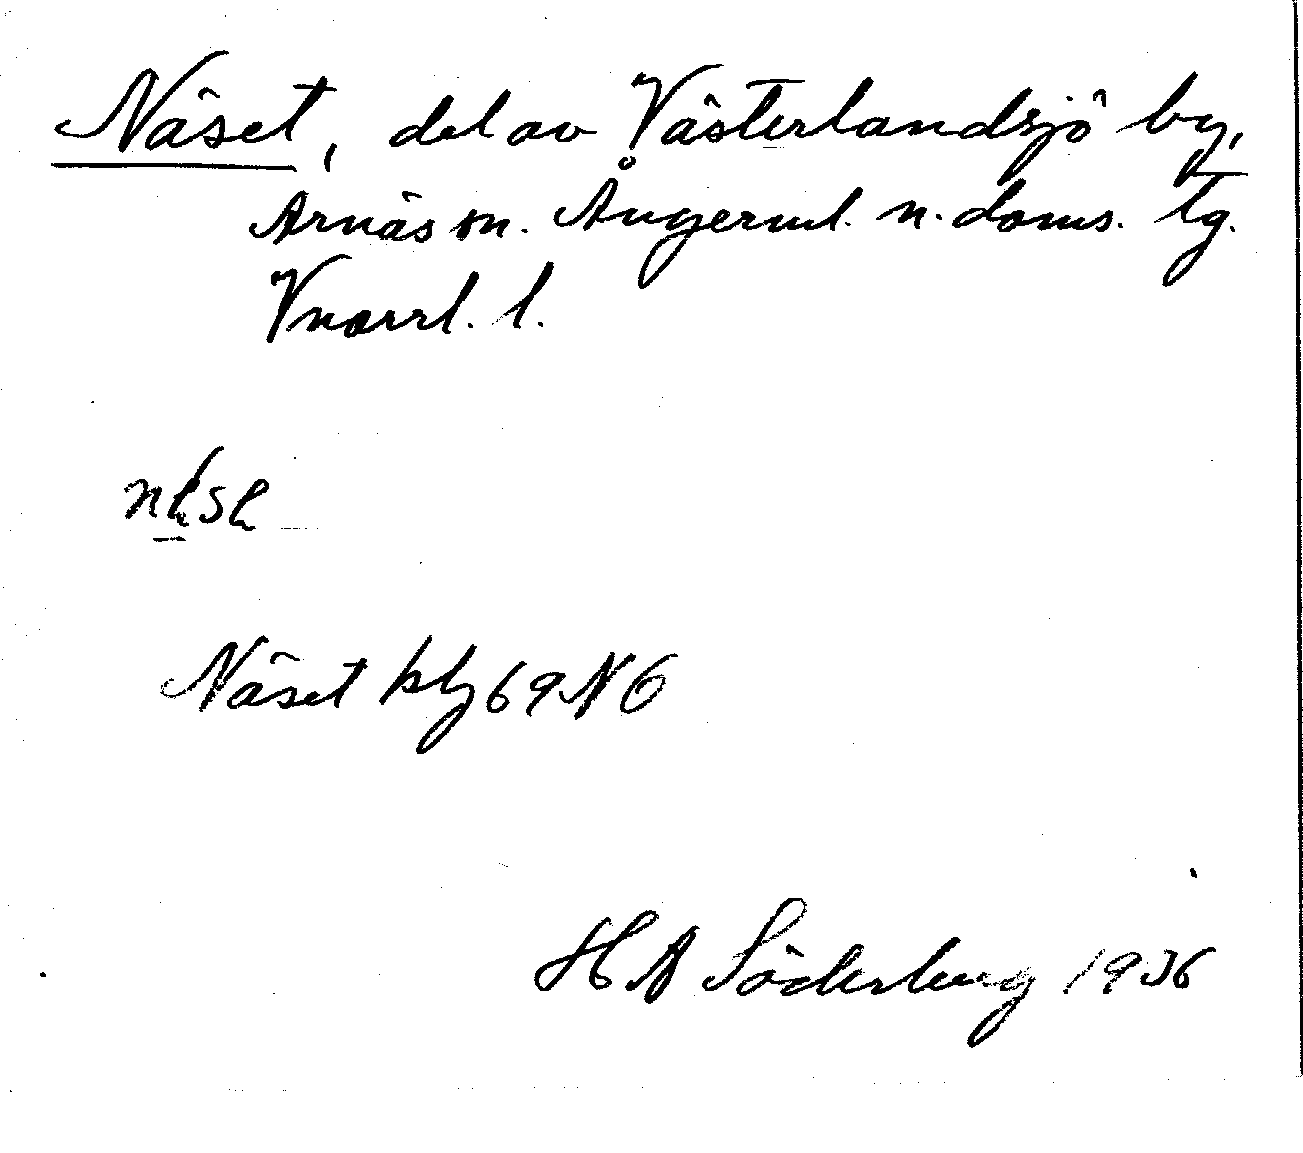 Näset, del av Västerlandsjö by,
Arnäs sn. Ångerml. n. doms. tg.
Vnorrl. l.
Näset kbl 69 NO
H A Söderberg 1936